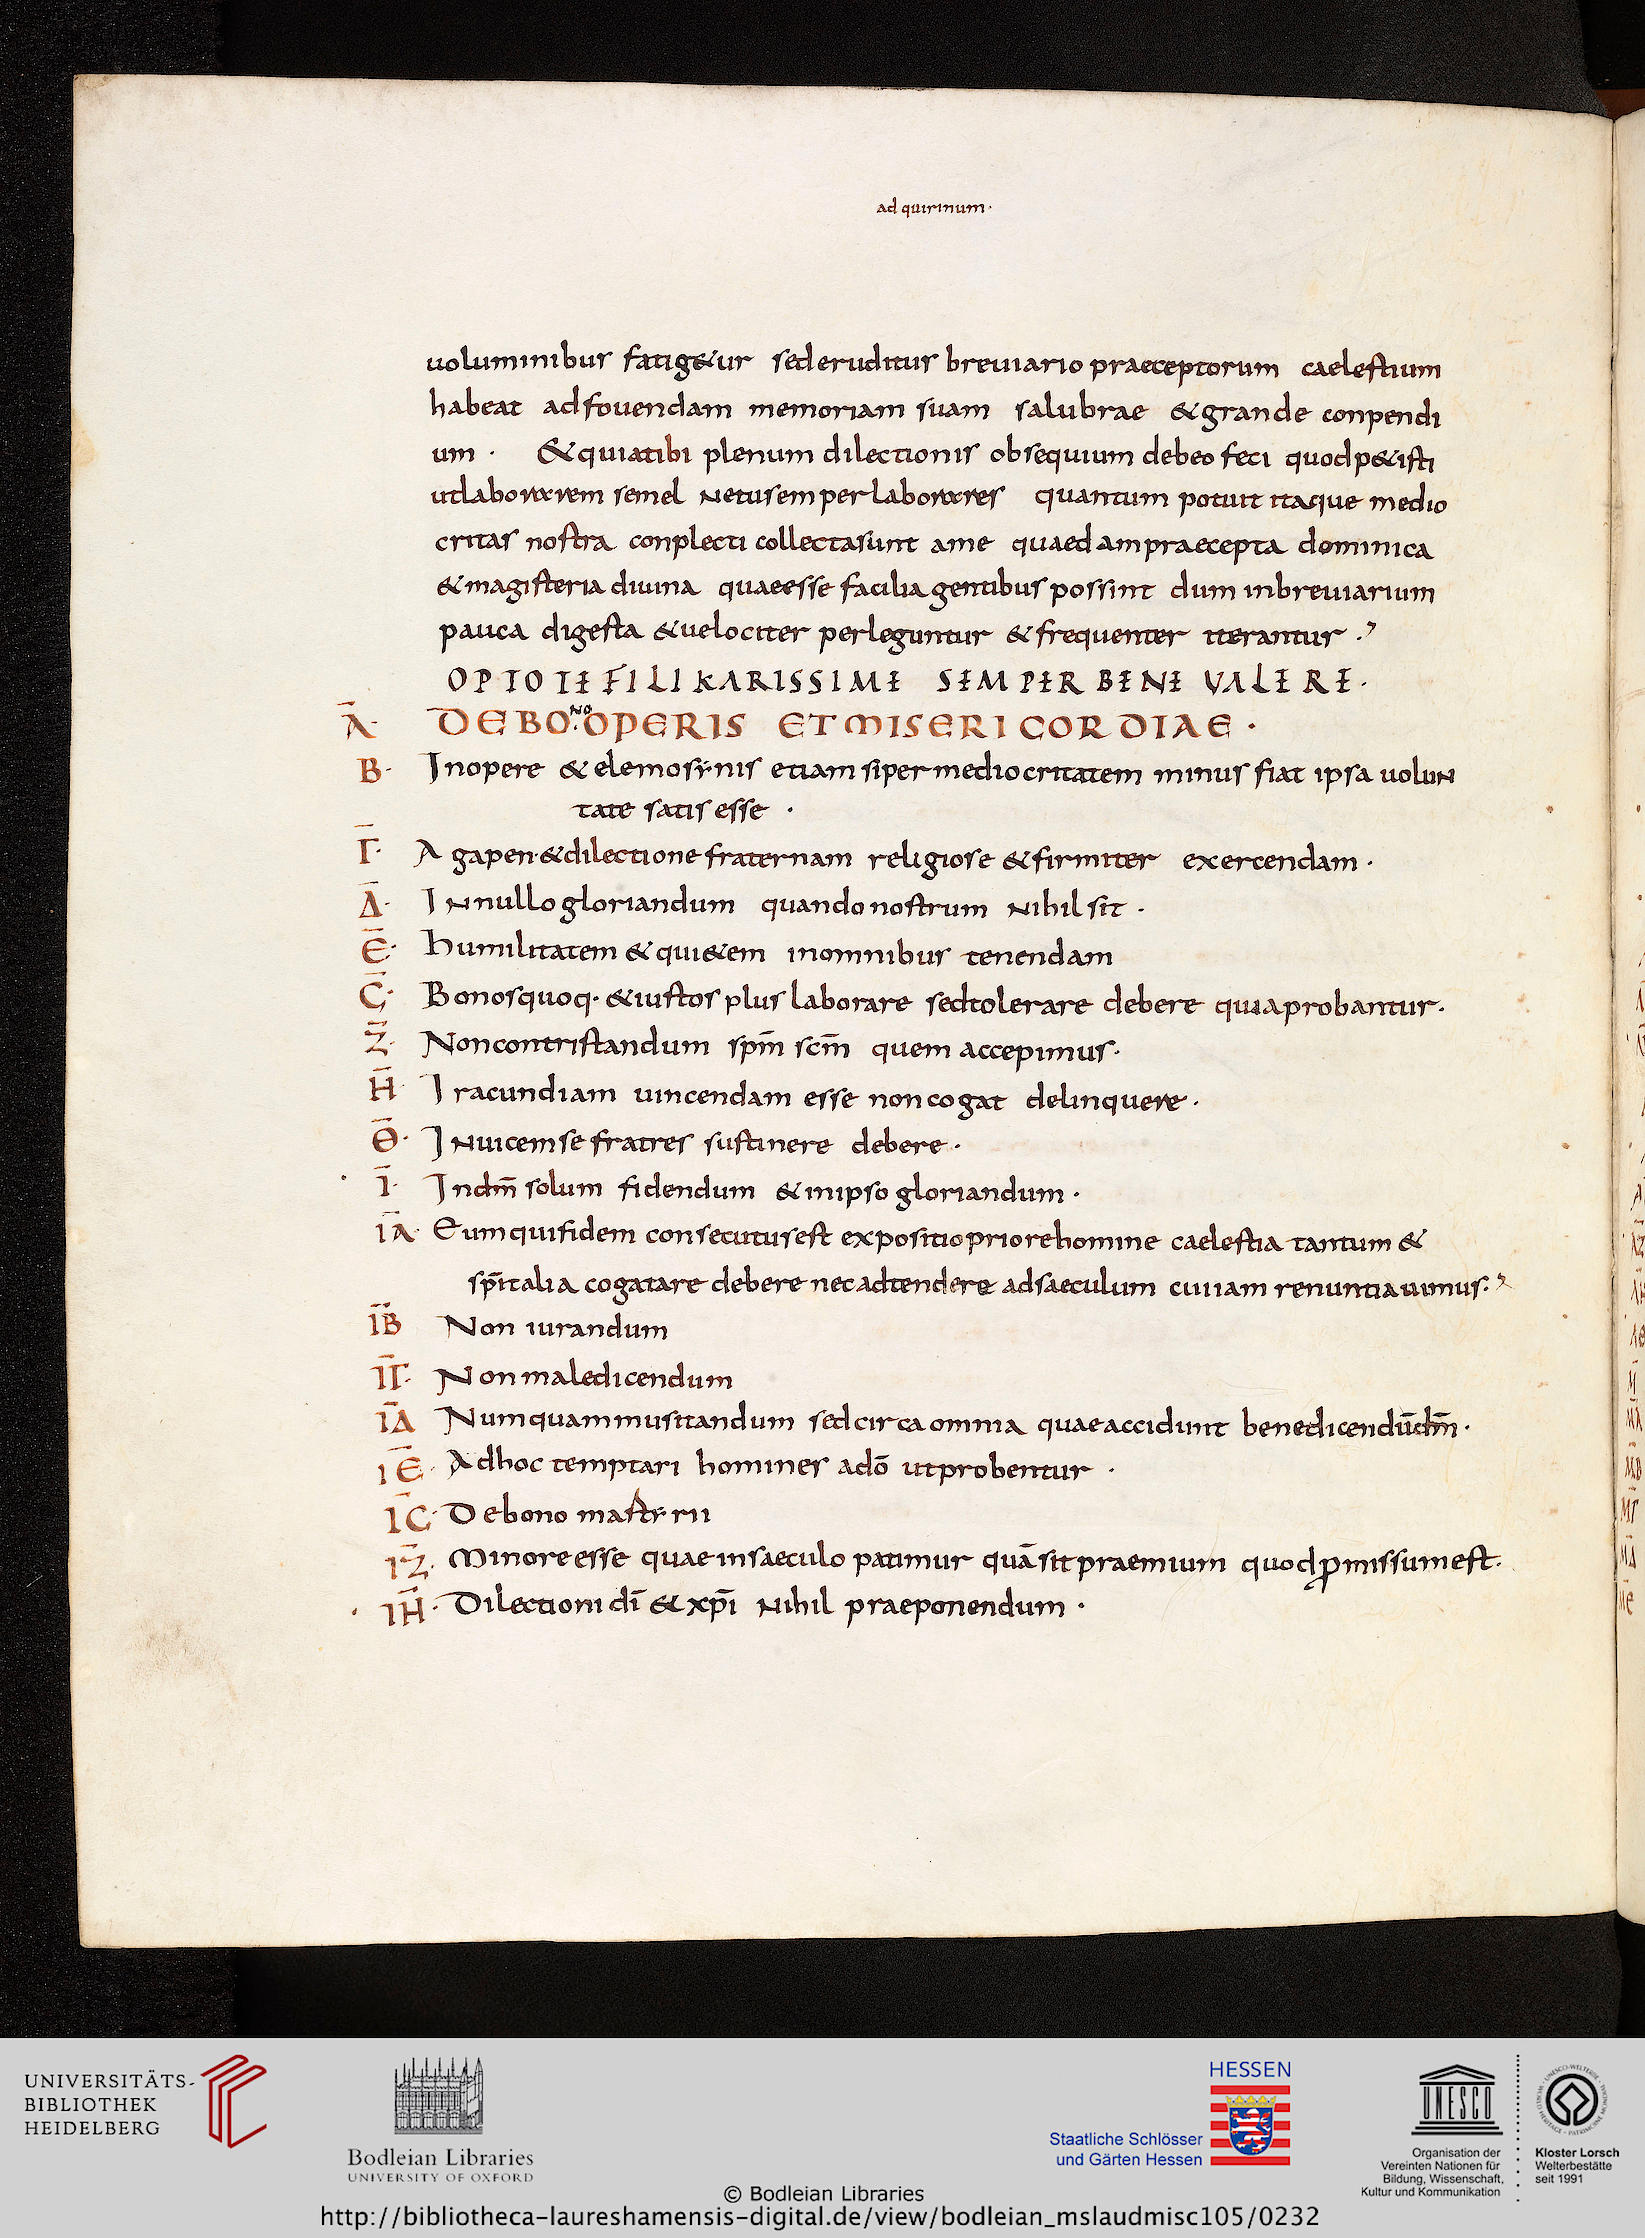 ad quirinum·
uoluminibus fatig&ur sed eruditus breuiario praeceptorum caelestium
habeat ad fouendam memoriam suam salubrae & grande conpendi
um · & quia tibi plenum dilectionis obsequium debeo feci quod p&isti
ut laborarem semel ne tu semper laborares quantum potuit itaque medio
critas nostra conplecti collecta sunt a me quaedam praecepta dominica
& magisteria diuina quae esse facilia gentibus possint dum in breuiarium
pauca digesta & uelociter perleguntur & frequenter iterantur .
OPTO TE FILI KARISSIME SEMPER BENE VALERE·
Ā· DE BONO OPERIS ET MISERICORDIAE·
B· In opere & elemosynis etiam si per mediocritatem minus fiat ipsa uolun
tate satis esse ·
Γ̄· Agapen·& dilectione fraternam religiose & firmiter exercendam·
Δ̄· In nullo gloriandum quando nostrum nihil sit ·
Ē· Humilitatem & qui&em in omnibus tenendam
C̄· Bonos quoq· & iustos plus laborare sed tolerare debere quia probantur·
Z̄· Non contristandum sp̄m sc̄m quem accepimus·
H̄ Iracundiam uincendam esse non cogat delinquere·
Θ̄· Inuicem se fratres sustinere debere·
Ī· In dm̄ solum fidendum & in ipso gloriandum·
ĪA· Eum qui fidem consecutus est expositio priore homine caelestia tantum &
sp̄italia cogatare debere nec adtendere ad saeculum cui iam renuntiauimus·
ĪB̄ Non iurandum
IΓ̄· Non maledicendum
IΔ̄ Numquam musitandum sed circa omnia quae accidunt benedicendū dm̄·
IĒ· Ad hoc temptari homines a dō ut probentur ·
IC̄· De bono mastyrii
IZ̄· Minore esse quae in saeculo patimur quā sit praemium quod ꝓmissum est·
IH̄· Dilectioni dī & xp̄i nihil praeponendum·
UNIVERSITÄTS-
BIBLIOTHEK
HEIDELBERG
Bodleian Libraries
UNIVERSITY OF OXFORD
HESSEN
Staatliche Schlösser
und Gärten Hessen
UNESCO
Organisation der
Vereinten Nationen für
Bildung, Wissenschaft,
Kultur und Kommunikation
Kloster Lorsch
Welterbestätte
seit 1991
© Bodleian Libraries
http://bibliotheca-laureshamensis-digital.de/view/bodleian_mslaudmisc105/0232